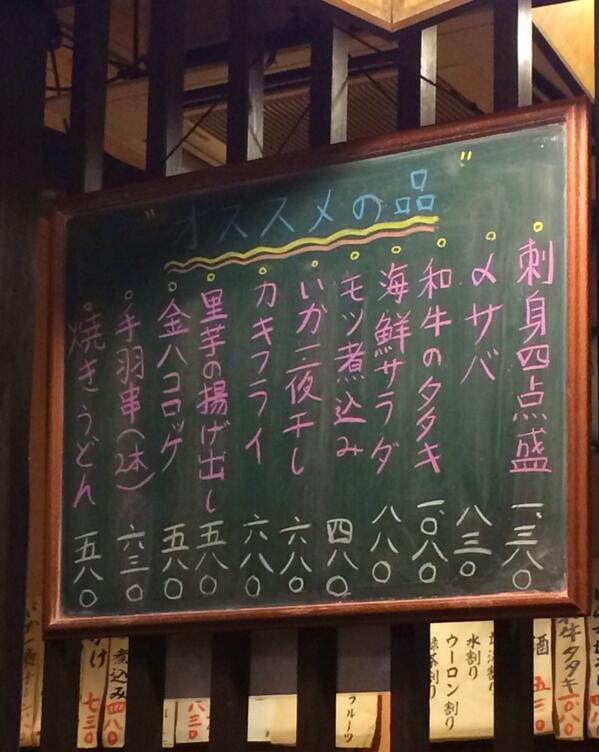 "オススメの品"
刺身四点盛 一、三八〇
〆サバ 八三〇
和牛のタタキ 一、〇八〇
海鮮サラダ 八八〇
モツ煮込み 四八〇
いか一夜干し 六八〇
カキフライ 六八〇
里芋の揚げ出し 五八〇
金八コロッケ 五八〇
手羽串(2本) 六三〇
焼きうどん 五八〇
和牛タタキ 一〇八〇
酒
水割り
ウーロン割り
緑茶割り
フルーツ
煮込み 四八〇
七三〇